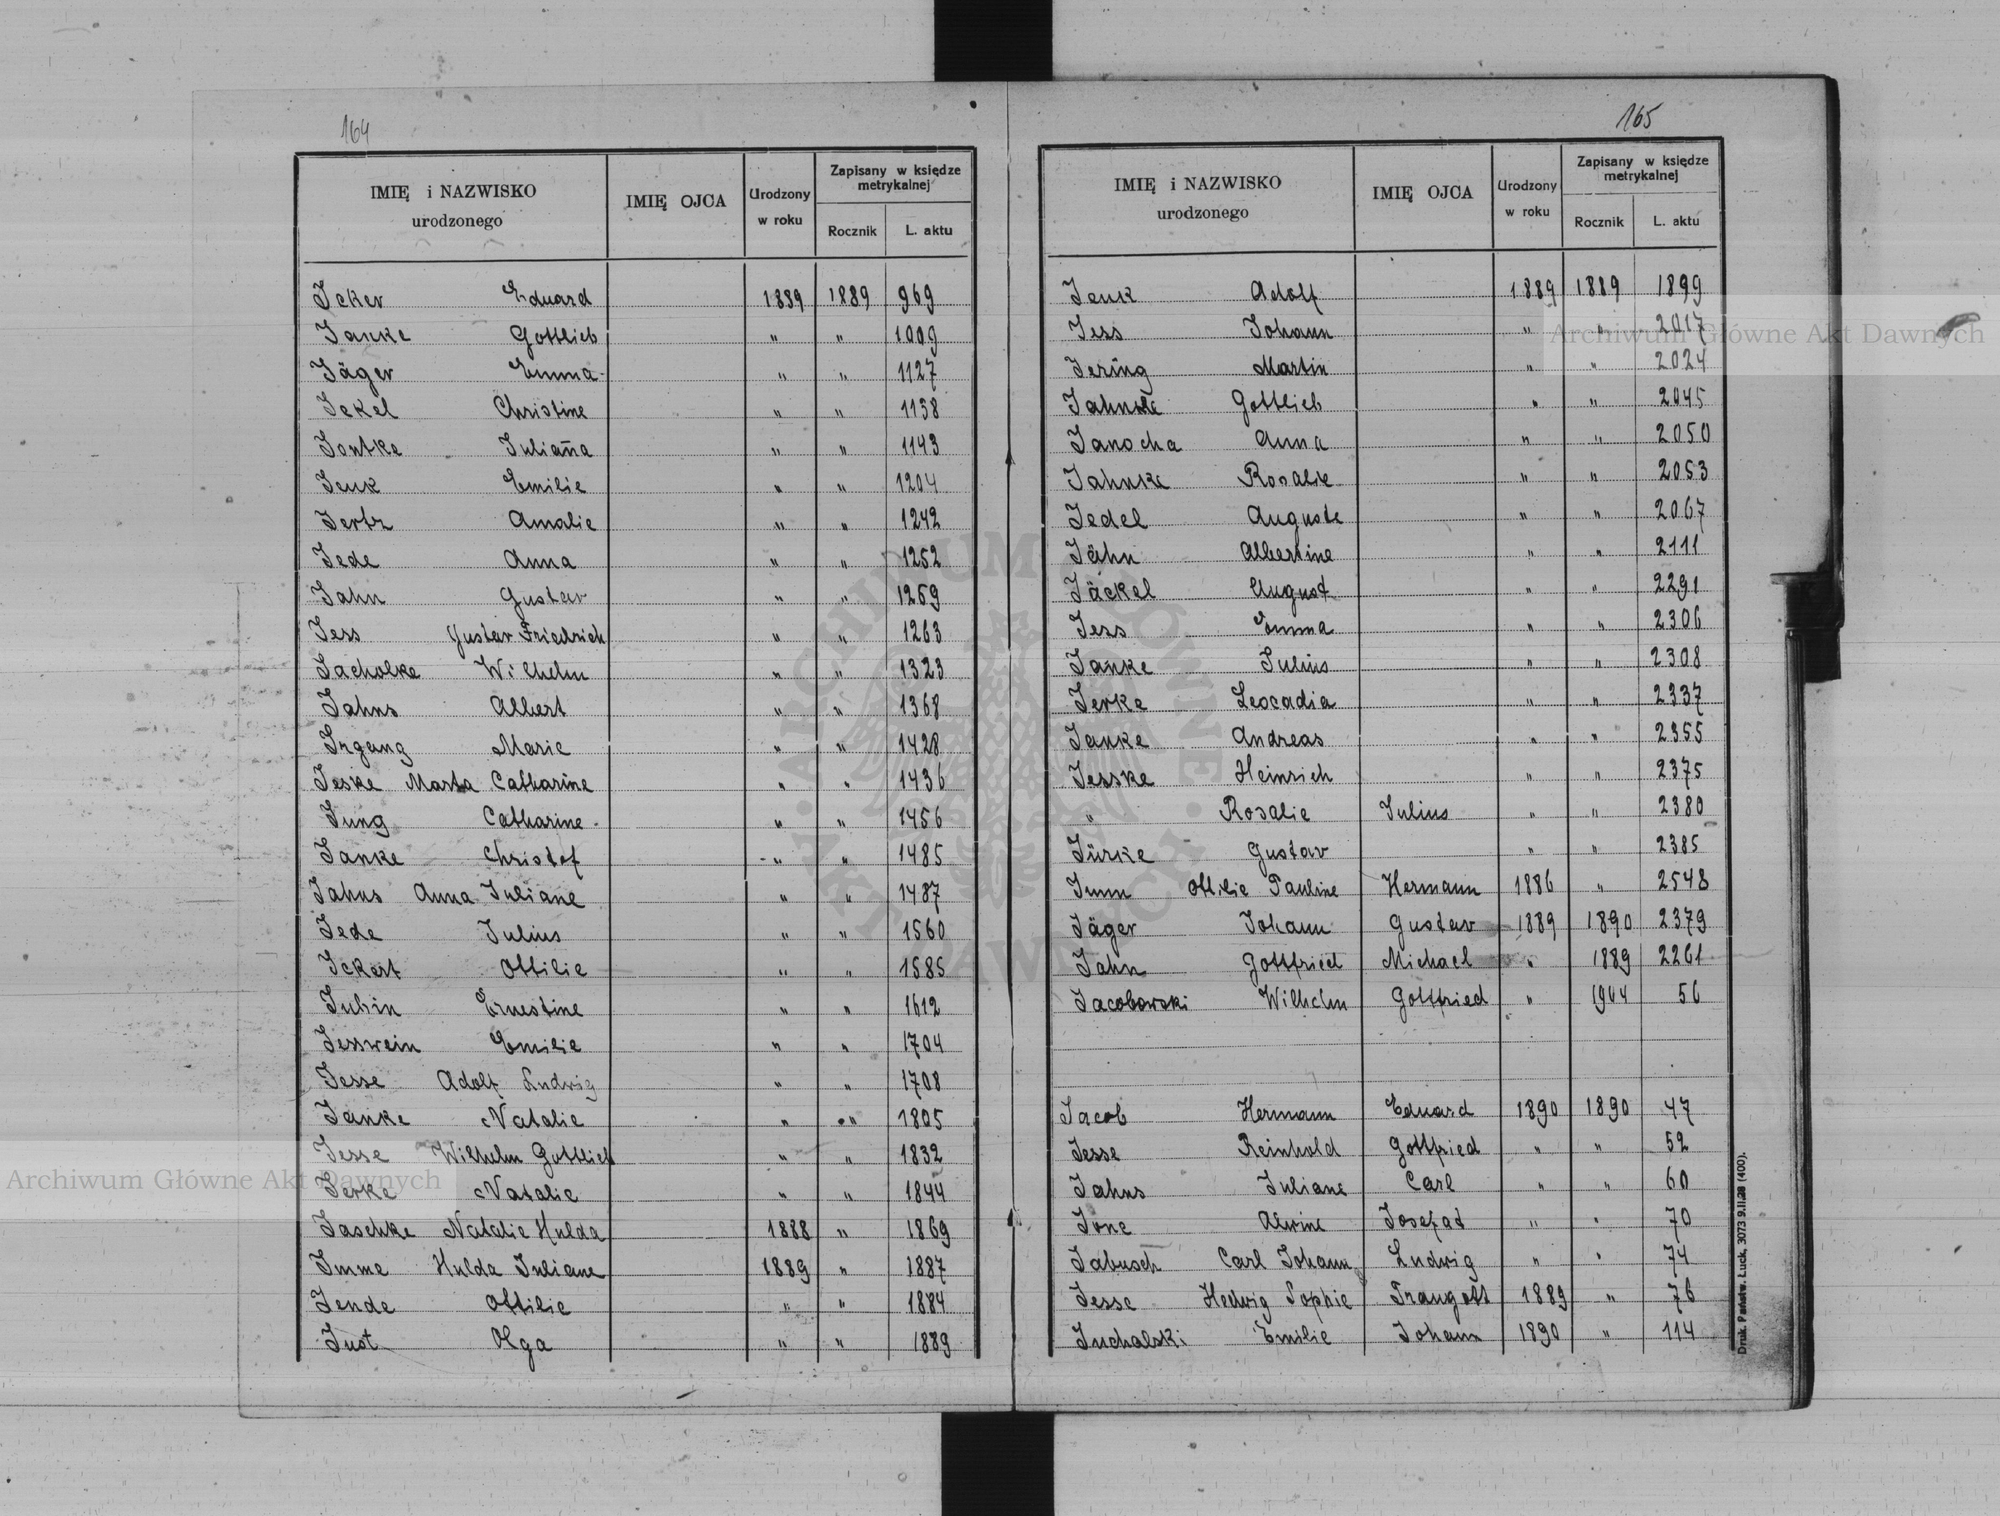 164
IMIĘ i NAZWISKO urodzonego IMIĘ OJCA Urodzony w roku Zapisany w księdze metrykalnej Rocznik L. aktu
Icker Eduard 1889 1889 969
Janke Gottlieb " " 1009
Jäger Emma " " 1127
Jekel Christine " " 1138
Jontke Juliana " " 1143
Jenk Emilie " " 1204
Jertz Amalie " " 1242
Jede Anna " " 1252
Jahn Gustav " " 1259
Jess Gustav Friedrich " " 1263
Jacholke Wilhelm " " 1323
Jahns Albert " " 1368
Irgang Marie " " 1428
Jeske Marta Catharine " " 1436
Jung Catharine " " 1456
Janke Christof " " 1485
Jahns Anna Juliane " " 1487
Jede Julius " " 1560
Ickert Ottilie " " 1585
Jubin Ernestine " " 1612
Jesswein Emilie " " 1704
Jesse Adolf Ludwig " " 1708
Janke Natalie " " 1805
Jesse Wilhelm Gottlieb " " 1832
Jerke Natalie " " 1844
Jaschke Natalie Hulda 1888 " 1869
Imme Hulda Juliane 1889 " 1887
Jende Ottilie " " 1884
Just Olga " " 1889
165
IMIĘ i NAZWISKO urodzonego IMIĘ OJCA Urodzony w roku Zapisany w księdze metrykalnej Rocznik L. aktu
Jenk Adolf 1889 1889 1899
Jess Johann " " 2017
Jering Martin " " 2024
Jahnke Gottlieb " " 2045
Janocha Anna " " 2050
Jahnke Rosalie " " 2053
Jedel Auguste " " 2067
Jähn Albertine " " 2111
Jäckel August " " 2291
Jess Emma " " 2306
Janke Julius " " 2308
Jerke Leocadia " " 2337
Janke Andreas " " 2355
Jesske Heinrich " " 2375
" Rosalie Julius " " 2380
Jürke Gustav " " 2385
Imm Ottilie Pauline Hermann 1886 " 2548
Jäger Johann Gustav 1889 1890 2379
Jahn Gottfried Michael " 1889 2261
Jacobowski Wilhelm Gottfried " 1904 56
Jacob Hermann Eduard 1890 1890 47
Jesse Reinhold Gottfried " " 52
Jahns Juliane Carl " " 60
Jone Alwine Josefat " " 70
Jabusch Carl Johann Ludwig " " 74
Jesse Hedwig Sophie Traugott 1889 " 76
Juchalski Emilie Johann 1890 " 114
Druk. Państw. Łuck, 3073 9.II.28 (400).
Archiwum Główne Akt Dawnych
Archiwum Główne Akt Dawnych
ARCHIWUM GŁÓWNE AKT DAWNYCH